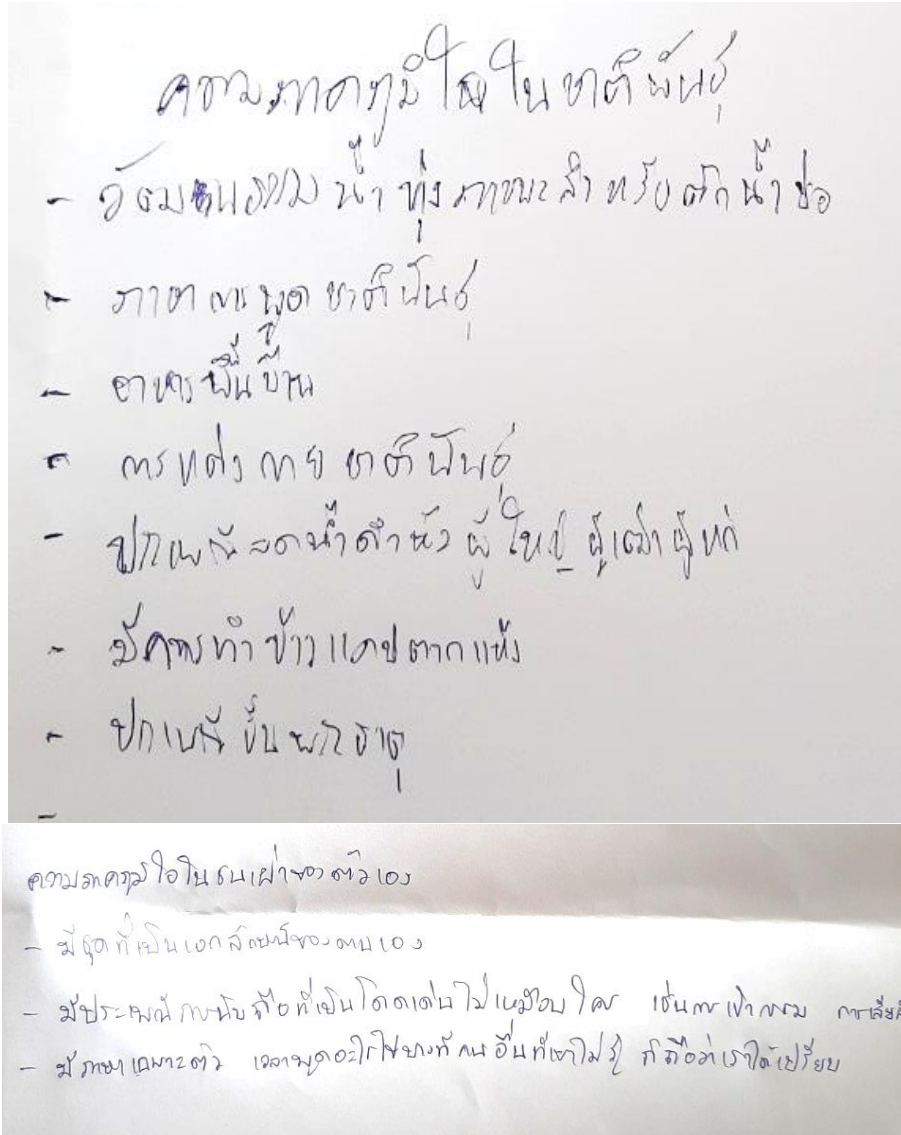 ความภาคภูมิใจในชาติพันธุ์
- วัฒนธรรมน้ำทุ่งภาชนะสำหรับตักน้ำบ่อ
- ภาษาการพูดชาติพันธุ์
- อาหารพื้นบ้าน
- การแต่งกายชาติพันธุ์
- ปกเพณีรดน้ำดำหัวผู้ใหญ่ ผู้เฒ่าผู้แก่
- มีการทำข้าวแคบตากแห้ง
- ปกเพณีขึ้นพระธาตุ
-
ความภาคภูมิใจในชนเผ่าของตัวเอง
- มีชุดที่เป็นเอกลักษณ์ของตนเอง
- มีประเพณีการนับถือที่เป็นโดดเด่นไม่เหมือนใคร เช่นการเข้ากรรม การเลี้ยง
- มีภาษาเฉพาะตัว เวลาพูดอะไร คนอื่นที่เขาไม่รู้ ก็ถือว่าเราได้เปรียบ